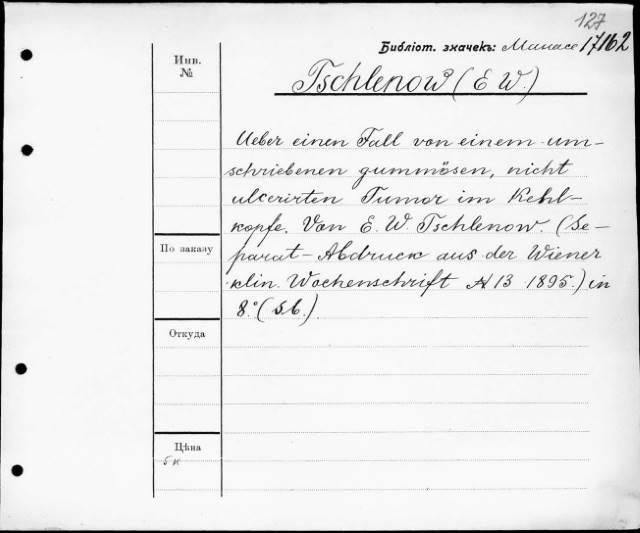 127
Библіот. значекъ: 17/162
Инв.
№
Tschlenow (E W.)
Ueber einen Fall von einem um-
schriebenen gummösen, nicht
ulcerirten Tumor im Kehl-
kopfe. Von E. W. Tschlenow. (Se-
По заказу
parat-Abdruck aus der Wiener
klin. Wochenschrift № 13 1895.) in
8.° (S.6.)
Откуда
Цѣна
5 к